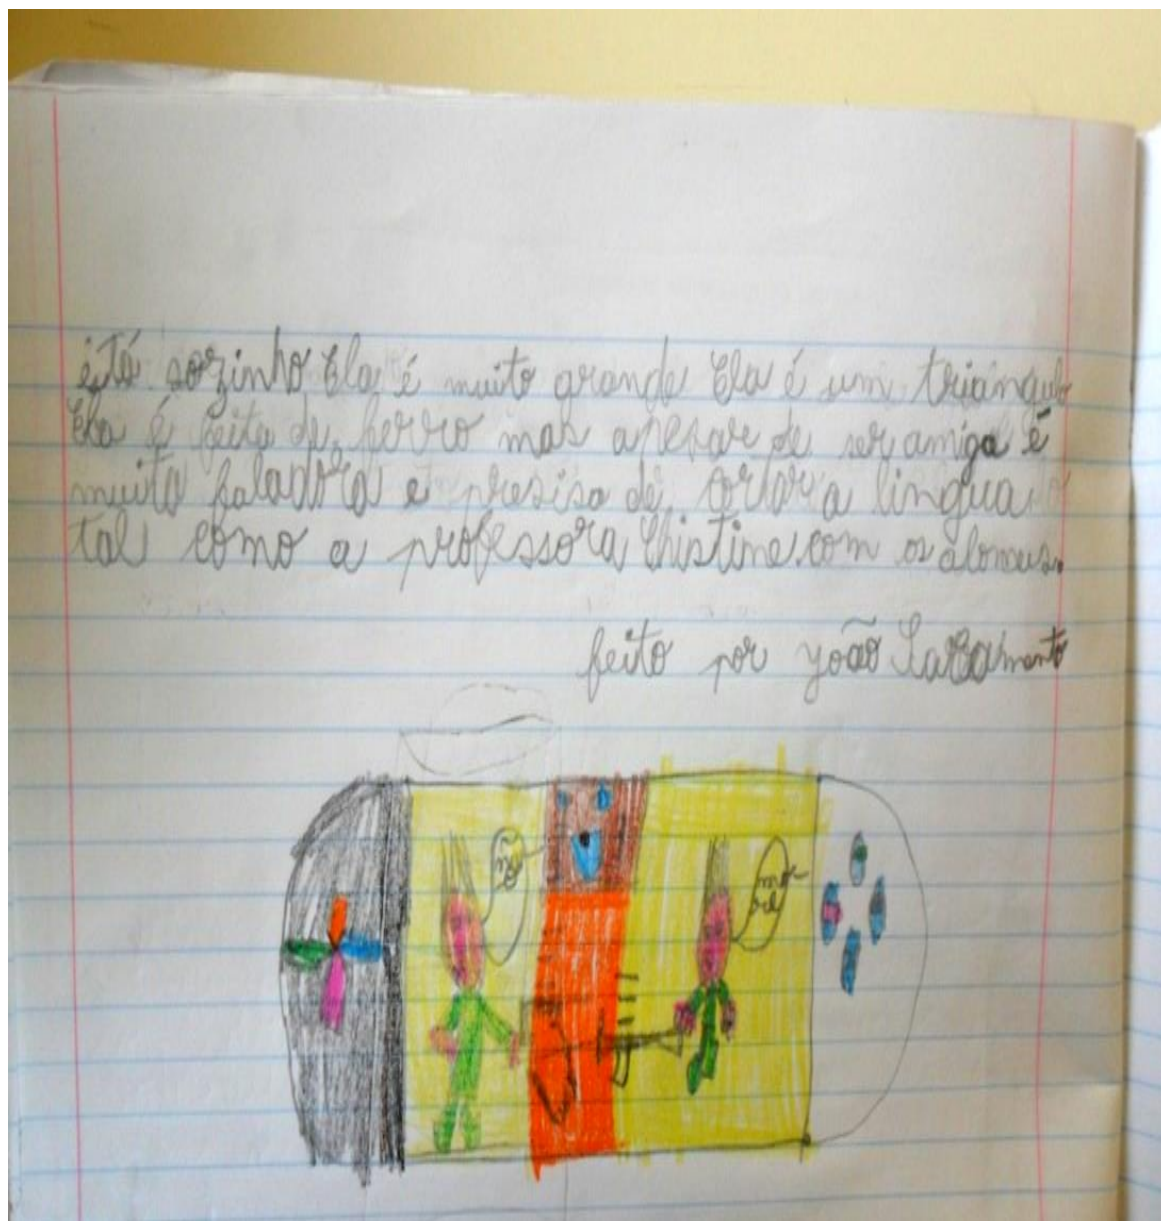 está sozinho Ela é muito grande Ela é um triângulo
Ela é feita de ferro mas apesare de ser amiga é
muita faladora e presisa de cortar a lingua
tal como a professora Christine com os alonus.
feito por João Sacramento
não